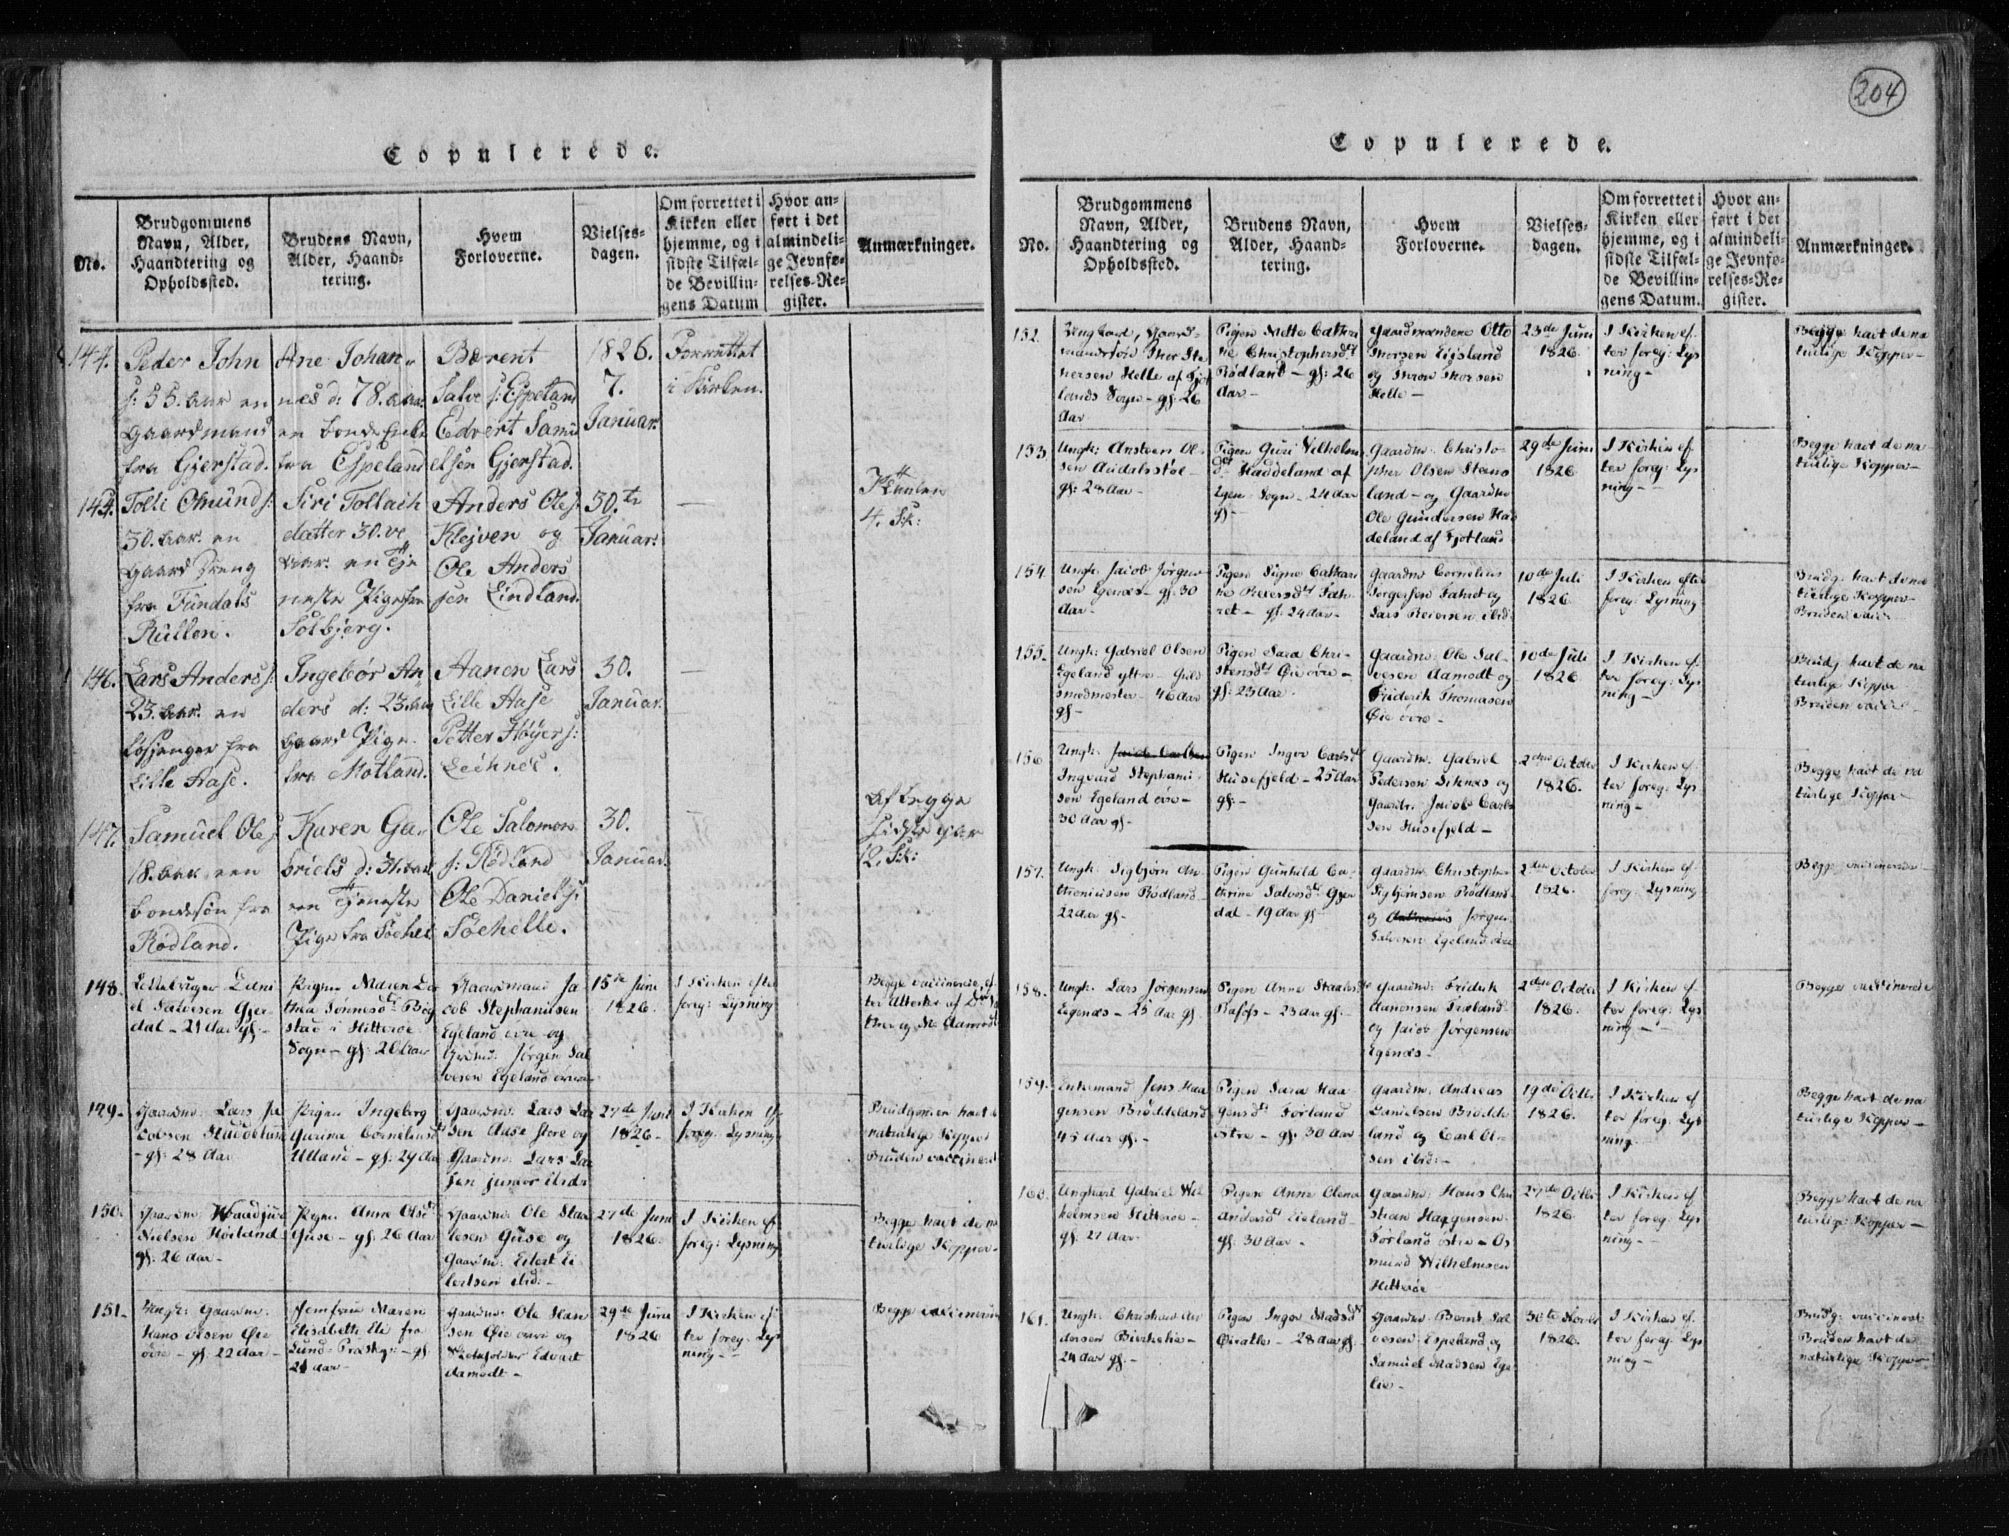 204
Copulerede.
No.
Brudgommens
Navn, Alder,
Haandtering og
Opholdssted.
Brudens Navn,
Alder, Haand-
tering.
Hvem
Forloverne.
Vielses-
dagen.
Om forrettet i
Kirken eller
hjemme, og i
sidste Tilfæl-
de Bevillin-
gens Datum
Hvor an-
ført i det
almindeli-
ge Jevnfø-
relses-Re-
gister.
Anmærkninger.
144.
Peder John
s: 55. aar en
Gaardmand
fra Gjerstad.
Ane Johan-
nes d: 78. aar
en bonde Enke
fra Espeland
Bærent
Salve s: Espeland
Edvert Samu
elsen Gjerstad.
1826.
7.
Januar.
Forrettet
i Kirken.
145.
Tolli Omund s:
30. aar en
Gaard Dreng
fra
Siri Tollach
datter 30.ve
aar en Tje
neste Pige fra
Solbjerg.
Anders Ole s:
Klejven og
Ole Anders
sen Lindland.
30.te
Januar.
—
4. Sk:
146.
Lars Anders s:
23. aar en
fra
Lille Aase.
Ingebör An
ders d: 23. aar
Gaard Pige
fra Motland.
Aanen Lars
Lille Aase
Petter Höyer s:
30.
Januar.
—
147.
Samuel Ole s
18. aar en
bondesön fra
Rödland.
Karen Ga-
briels d: 31. aar
en Tjeneste
Pige fra
Ole Salomon
s: Rödland
Ole Daniel s:
30.
Januar.
—
Af begge
12. Sk:
148.
Dani
el Salvesen Gyer
dal – 21 Aar gl. –
Pigen Maren Do
thea Tönnesd.
stad i Hitteröe
Sogn – gl: 20 Aar
Gaardmand Ja
cob Stephanisen
Egeland övre og
Gaardm: Jörgen Sal
vesen Egeland övre
15de Juni
1826.
I Kirken efter
foreg: Lysning
Begge vaccinerede, ef
ter Attester af
149.
Gaardm: Lars Ja
cobsen
– gl: 28 Aar
Pigen Ingeborg
Gurina Corneliusd.
Ulland – gl: 29 Aar
Gaardm: Lars Lar
sen Aase store og
Gaardm: Lars Lar
sen junior ibid:
27de Juni
1826 –
I Kirken ef
foreg: Lysning
Brudgommen havt de
naturlige Kopper
Bruden vaccineret
150.
Gaardm:
Nielsen Höiland
gl: 26 Aar –
Pigen Anna Olsd.
Guse – gl: 26 Aar
Gaardm: Ole
Guse og
Gaardm: Eilert Ei
lertsen ibid: –
27de Juni
1826.
I Kirken ef.
foreg: Lysning
Begge havt de na
turlige Kopper –
151.
Ungk: Gaardm:
Hans Olsen Öie
övre – gl: 22 Aar –
Jomfrue Maren
Elisabeth Eli fra
Lund Præstegj: – gl:
21 Aar –
Gaardm: Ole Han
sen Öie övre og
Edvart
Aamodt –
29de Juni
1826
I Kirken ef
ter foreg: Lys
ning –
Begge vaccinerede
Copulerede.
No.
Brudgommens
Navn, Alder,
Haandtering og
Opholdssted.
Brudens Navn,
Alder, Haand-
tering.
Hvem
Forloverne.
Vielses-
dagen.
Om forrettet i
Kirken eller
hjemme, og i
sidste Tilfæl-
de Bevillin-
gens Datum.
Hvor an-
ført i det
almindeli-
ge Jevnfø-
relses-Re-
gister.
Anmærkninger.
152.
Ungkarl, Gaard-
mandssön Thor Ste
nersen Helle af Fjot
lands Sogn – gl: 26
Aar
Pigen Mette Cathri
ne Christophersd.
Rödland – gl: 26
Aar –
Gaardmændene Otto
Thorsen Eigsland
og Thron Thorsen
Helle –
23de Juni
1826.
I Kirken ef-
ter foreg: Lys
ning –
Begge havt de na
turlige Kopper –
153.
Ungk: Ansteen Ol-
sen
gl: 28 Aar –
Pigen Guri Vilhelms
d. Haddeland af
Sogn – 24 Aar
gl –
Gaardm: Christo-
pher Olsen
land – og Gaardm
Ole Gundersen Had
deland af Fjotland
29de Juni
1826
I Kirken ef-
ter foreg: Lys
ning –
Begge havt de na
turlige Kopper –
154.
Ungk: Jacob Jörgen
sen Egenæs – gl: 30
Aar –
Pigen Signe Cathari
ne Reiersd.
gl: 24 Aar –
Gaardm: Cornelius
Torgersen og
Lars Reiersen ibid:
10de Juli
1826.
I Kirken efter
foreg: Lysning
Brudg: havt de na
turlige Kopper –
Bruden vacc:
155.
Ungk: Gabriel Olsen
Egeland yttre – Guld
smedmester – 46 Aar
gl –
Pigen Sara Chri-
stensd. Öie övre –
gl: 23 Aar.
Gaardm: Ole Sal-
vesen Aamodt og
Friderik Thomasen
Öie övre –
10de Juli
1826
I Kirken ef.
ter foreg: Lys
ning –
Brudg: havt de na
turlige Kopper
Bruden vacci –
156
Ungk:
Ingvard Stephani-
sen Egeland övre –
30 Aar gl –
Pigen Inger Carlsd.
Husefjeld – 25 Aar
gl: –
Gaardm: Gabriel
Pedersen og
Gaardm: Jacob Carls
sen Husefjeld –
2den October
1826.
I Kirken ef.
ter foreg: Lys
ning –
Begge havt de na
turlige Kopper –
157.
Ungk: Sigbjörn An
Rödland
22 Aar gl –
Pigen Gunhild Ca-
thrine Salvesd. Gyer
dal – 19 Aar gl –
Gaardm: Christopher
Sigbjörnsen Rödland
og Jörgen
Salvesen Egeland övre
2den October
1826.
I Kirken ef.
foreg: Lysning
Begge vaccinerede
158.
Ungk: Lars Jörgensen
Egenæs – 25 Aar gl.
Pigen Anne
– 23 Aar gl: –
Gaardm: Friderik
Aanensen
og Jacob Jörgensen
Egenæs –
2den October
1826.
I Kirken ef
ter foreg: Lys
ning –
Begge vaccinerede
159.
Enkemand Jens Haa
gensen Bröddeland
45 Aar gl: –
Pigen Sara Haa
gensd. Forland
östre – gl: 30 Aar
Gaardm: Andreas
Danielsen Brödde
land og Carl Ol-
sen ibid: –
19de Octbr
1826.
I Kirken ef
ter foreg: Lys
ning
Begge havt de na
turlige Kopper –
160.
Ungkarl Gabriel Wil
helmsen Hitteröe –
gl: 27 Aar
Pigen Anne Olena
Andersd.
gl: 30 Aar –
Gaardm: Hans Chri
stian Haagensen
Förland östre – Os
mund Wilhelmsen
Hitteröe
27de Octbr
1826
I Kirken ef
ter foreg: Lys
ning –
Begge havt de na
turlige Kopper –
161.
Ungk: Christian An
dersen Birkelie –
24 Aar gl: –
Pigen Inger Madsd.
– 28 Aar gl.
Gaardm: Bernt Sal
vesen: Espeland og
Samuel Madsen Ege
lie –
30te Novbr
1826.
I Kirken ef.
ter foreg: Lys
ning –
Brudg: vaccineret
Bruden havt de
naturlige Kopper